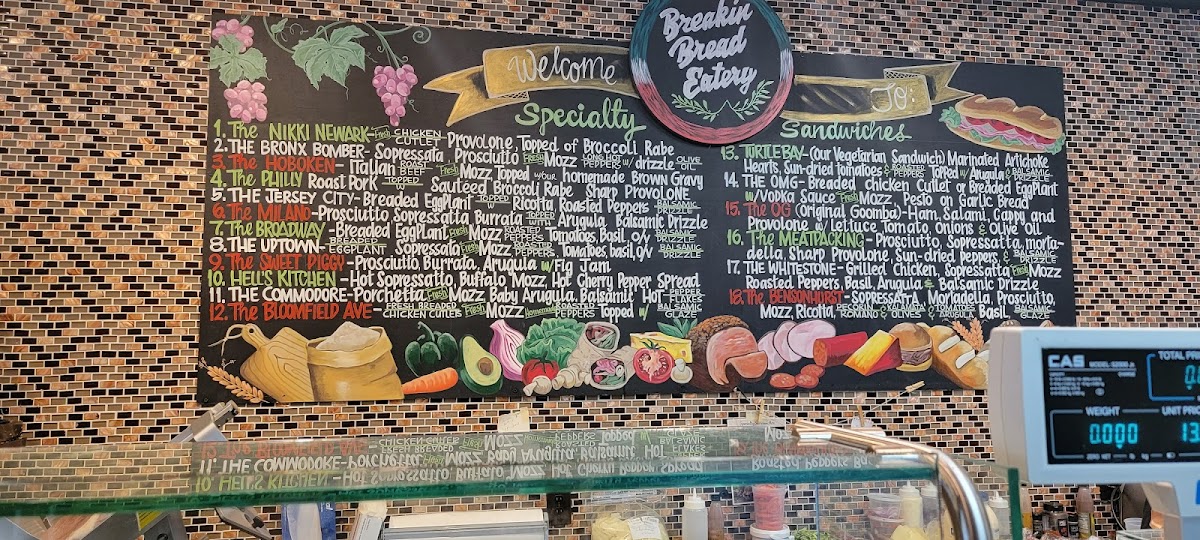 Breakin
Bread
Eatery
Welcome
To:
Specialty
Sandwiches
1. The NIKKI NEWARK - Fresh CHICKEN CUTLET Provolone, Topped of Broccoli Rabe
2. THE BRONX BOMBER - Sopressata, Prosciutto Fresh Mozz LONG HOT PEPPERS w/ drizzle OLIVE OIL
3. The HOBOKEN - Italian ROAST BEEF Fresh Mozz Topped w/our homemade Brown Gravy
4. The PHILLY Roast Pork TOPPED W/ Sautéed Broccoli Rabe Sharp PROVOLONE
5. THE JERSEY CITY - Breaded EggPlant TOPPED Ricotta, Roasted Peppers BALSAMIC DRIZZLE
6. The MILANO - Prosciutto Sopressatta, Burrata TOPPED Arugula, Balsamic Drizzle
7. The BROADWAY - Breaded EggPlant Fresh Mozz ROASTED PEPPERS, Tomatoes, Basil, o/v BALSAMIC DRIZZLE
8. THE UPTOWN - BREADED EGGPLANT, Sopressata Fresh Mozz ROASTED PEPPERS, Tomatoes, basil, o/v BALSAMIC DRIZZLE
9. THE SWEET PIGGY - Prosciutto, Burrata, Arugula w/ Fig Jam
10. HELL'S KITCHEN - Hot Sopressata, Buffalo Mozz, Hot Cherry Pepper Spread
11. THE COMMODORE - Porchetta Fresh Mozz Baby Arugula, Balsamit Hot PEPPER FLAKES
12. The BLOOMFIELD AVE - FRESH BREADED CHICKEN CUTLET Fresh Mozz Homemade ROASTED PEPPERS Topped w/ BALSAMIC GLAZE
13. TURTLE BAY - (Our Vegetarian Sandwich) Marinated Artichoke
Hearts, Sun-dried tomatoes & ROASTED PEPPERS Topped w/ Arugula & BALSAMIC DRIZZLE
14. THE OMG - Breaded Chicken Cutlet or Breaded EggPlant
w/ Vodka Sauce Fresh Mozz, Pesto on Garlic Bread
15. The OG (Original Goomba) - Ham, Salami, Cappy and
Provolone w/ Lettuce, Tomato, Onions & Olive Oil
16. The MEATPACKING - Prosciutto, Sopressatta, morta-
della, Sharp Provolone, Sun-dried pepers, & BALSAMIC DRIZZLE
17. THE WHITESTONE - Grilled Chicken, Sopressatta Fresh Mozz
Roasted Peppers, Basil, Arugula & Balsamic Drizzle
18. THE BENSONHURST - SOPRESSATTA, Morladella, Prosciutto,
Mozz, Ricotta, ROMANO & OLIVES & ARUGULA Basil, BALSAMIC GLAZE
CAS
TOTAL
WEIGHT
UNIT
0.000